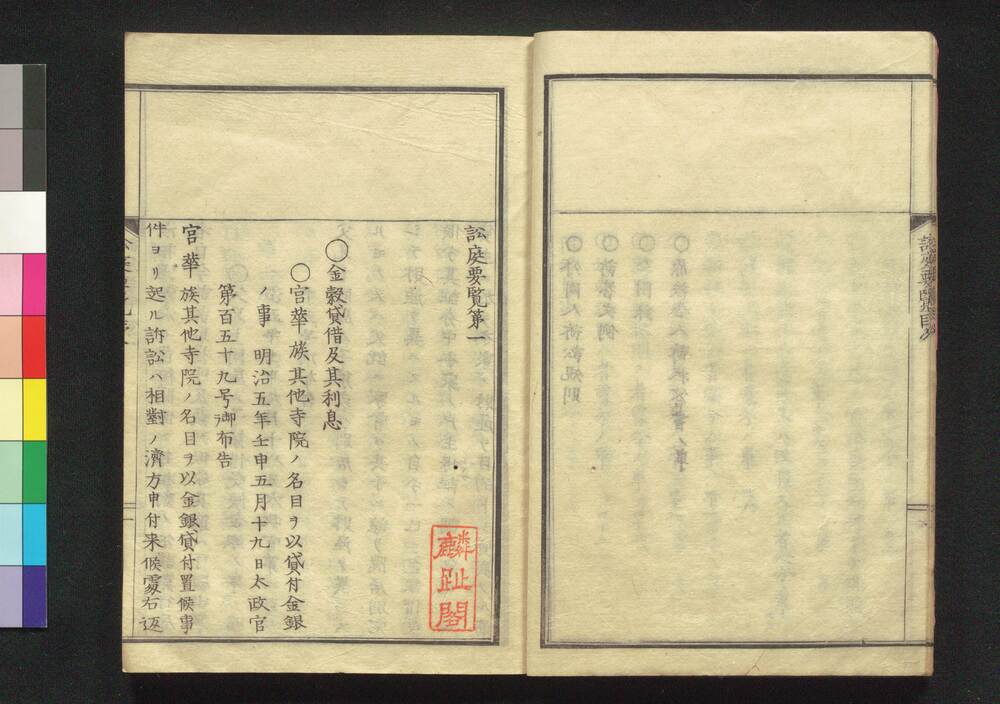 訟庭要覧目
訟庭要覧第一
麟趾閣
〇金穀貸借及其利息
〇官華族其他寺院ノ名目ヲ以貸付金銀
ノ事 明治五年壬申五月十九日太政官
第百五十九号御布告
官華族其他寺院ノ名目ヲ以金銀貸付置候事
件ヨリ起ル訴訟ハ相對ノ濟方申付来候處右返